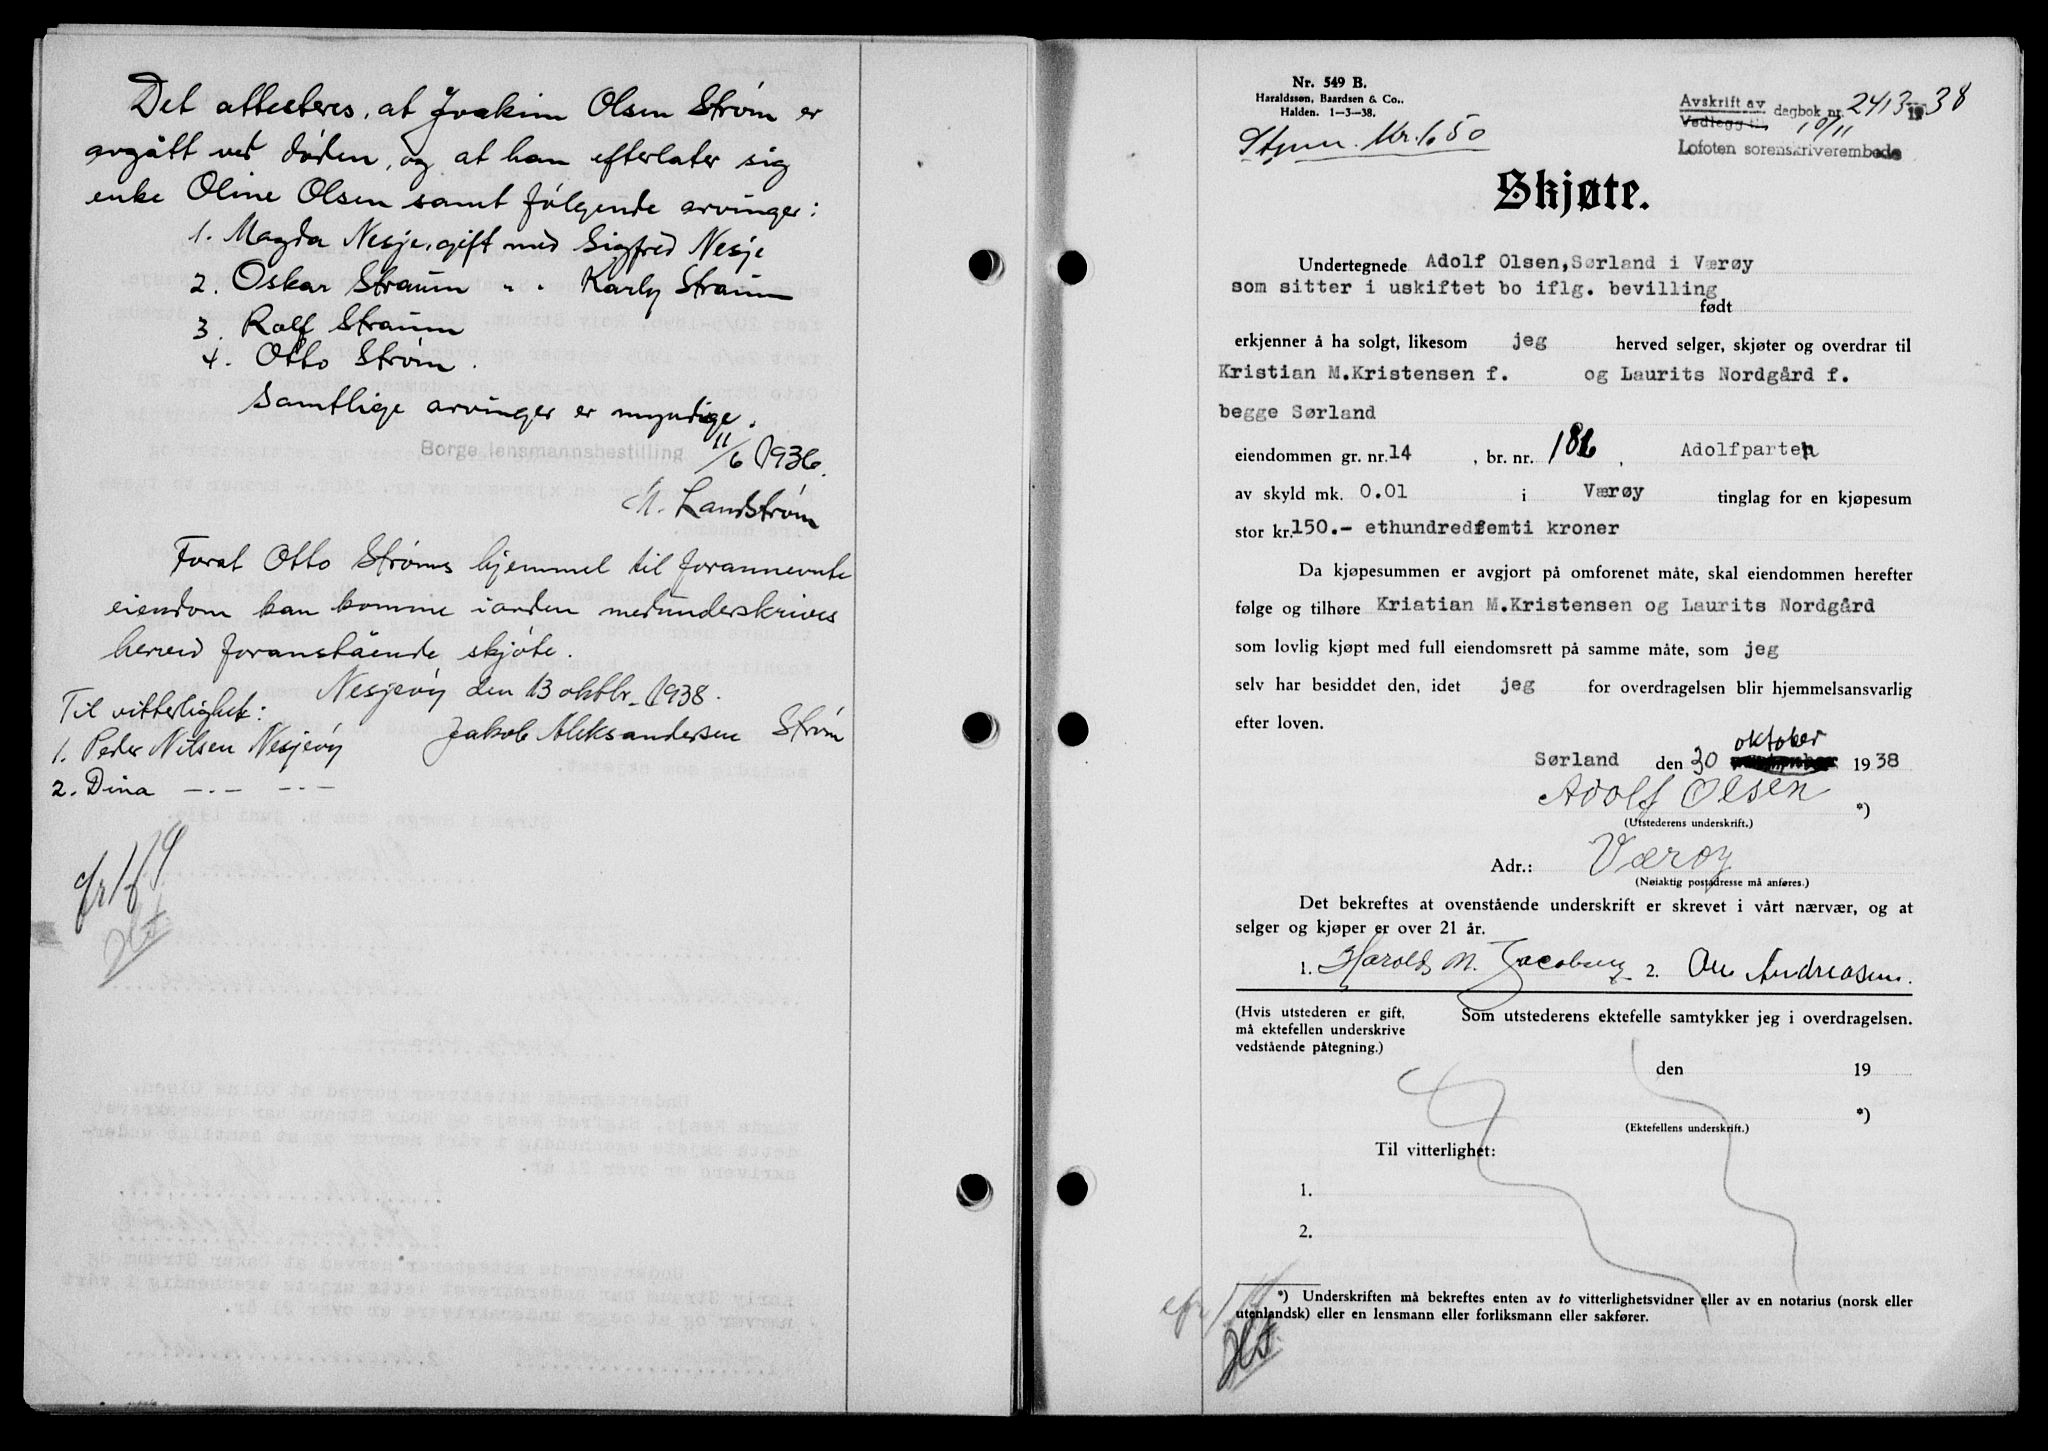 Det attesteres, at Joakim Olsen Strøm er
avgått ved døden, og at han efterlater sig
enke Oline Olsen samt følgende arvinger:
1. Magda Nesje, gift med Sigfred Nesje
2. Oskar Straum " " Karly Straum
3. Rolf Straum
4. Otto Strøm.
Samtlige arvinger er myndige.
Borge lensmannsbestilling 11/6 1936.
M. Landstrøm
Forat Otto Strøms hjemmel til forannevnte
eiendom kan komme i orden medunderskrives
herved foranstående skjøte.
Nesjevøy den 13 oktbr. 1938.
Til vitterlighet:
Jakob Aleksandersen Strøm
1. Peder Nilsen Nesjevøy
2. Dina —.— —.—
Nr. 549 B.
Haraldssøn, Baardsen & Co.,
Halden. 1—3—38.
Avskrift av
Vedlegg til
dagbok nr. 2413 1938
10/11
Lofoten sorenskriverembede
Skjøte.
Undertegnede Adolf Olsen, Sørland i Værøy
som sitter i uskiftet bo iflg. bevilling
født
erkjenner å ha solgt, likesom jeg herved selger, skjøter og overdrar til
Kristian M.Kristensen f. og Laurits Nordgård f.
begge Sørland
eiendommen gr. nr. 14 , br. nr. 186 , Adolfparten
av skyld mk. 0.01 i Værøy tinglag for en kjøpesum
stor kr. 150.- ethundredfemti kroner
Da kjøpesummen er avgjort på omforenet måte, skal eiendommen herefter
følge og tilhøre Kriatian M.Kristensen og Laurits Nordgård
som lovlig kjøpt med full eiendomsrett på samme måte, som jeg
selv har besiddet den, idet jeg for overdragelsen blir hjemmelsansvarlig
efter loven.
oktober
Sørland den 30 1938
Adolf Olsen *)
(Utstederens underskrift.)
Adr.: Værøy
(Nøiaktig postadresse må anføres.)
Det bekreftes at ovenstående underskrift er skrevet i vårt nærvær, og at
selger og kjøper er over 21 år.
1. Harold M. Jacobsen 2. Ole Andreasen.
(Hvis utstederen er gift,
må ektefellen underskrive
vedstående påtegning.)
Som utstederens ektefelle samtykker jeg i overdragelsen.
den 19
*)
(Ektefellens underskrift.)
Til vitterlighet:
1.
2.
*) Underskriften må bekreftes enten av to vitterlighetsvidner eller av en notarius (norsk eller
utenlandsk) eller en lensmann eller forliksmann eller sakfører.